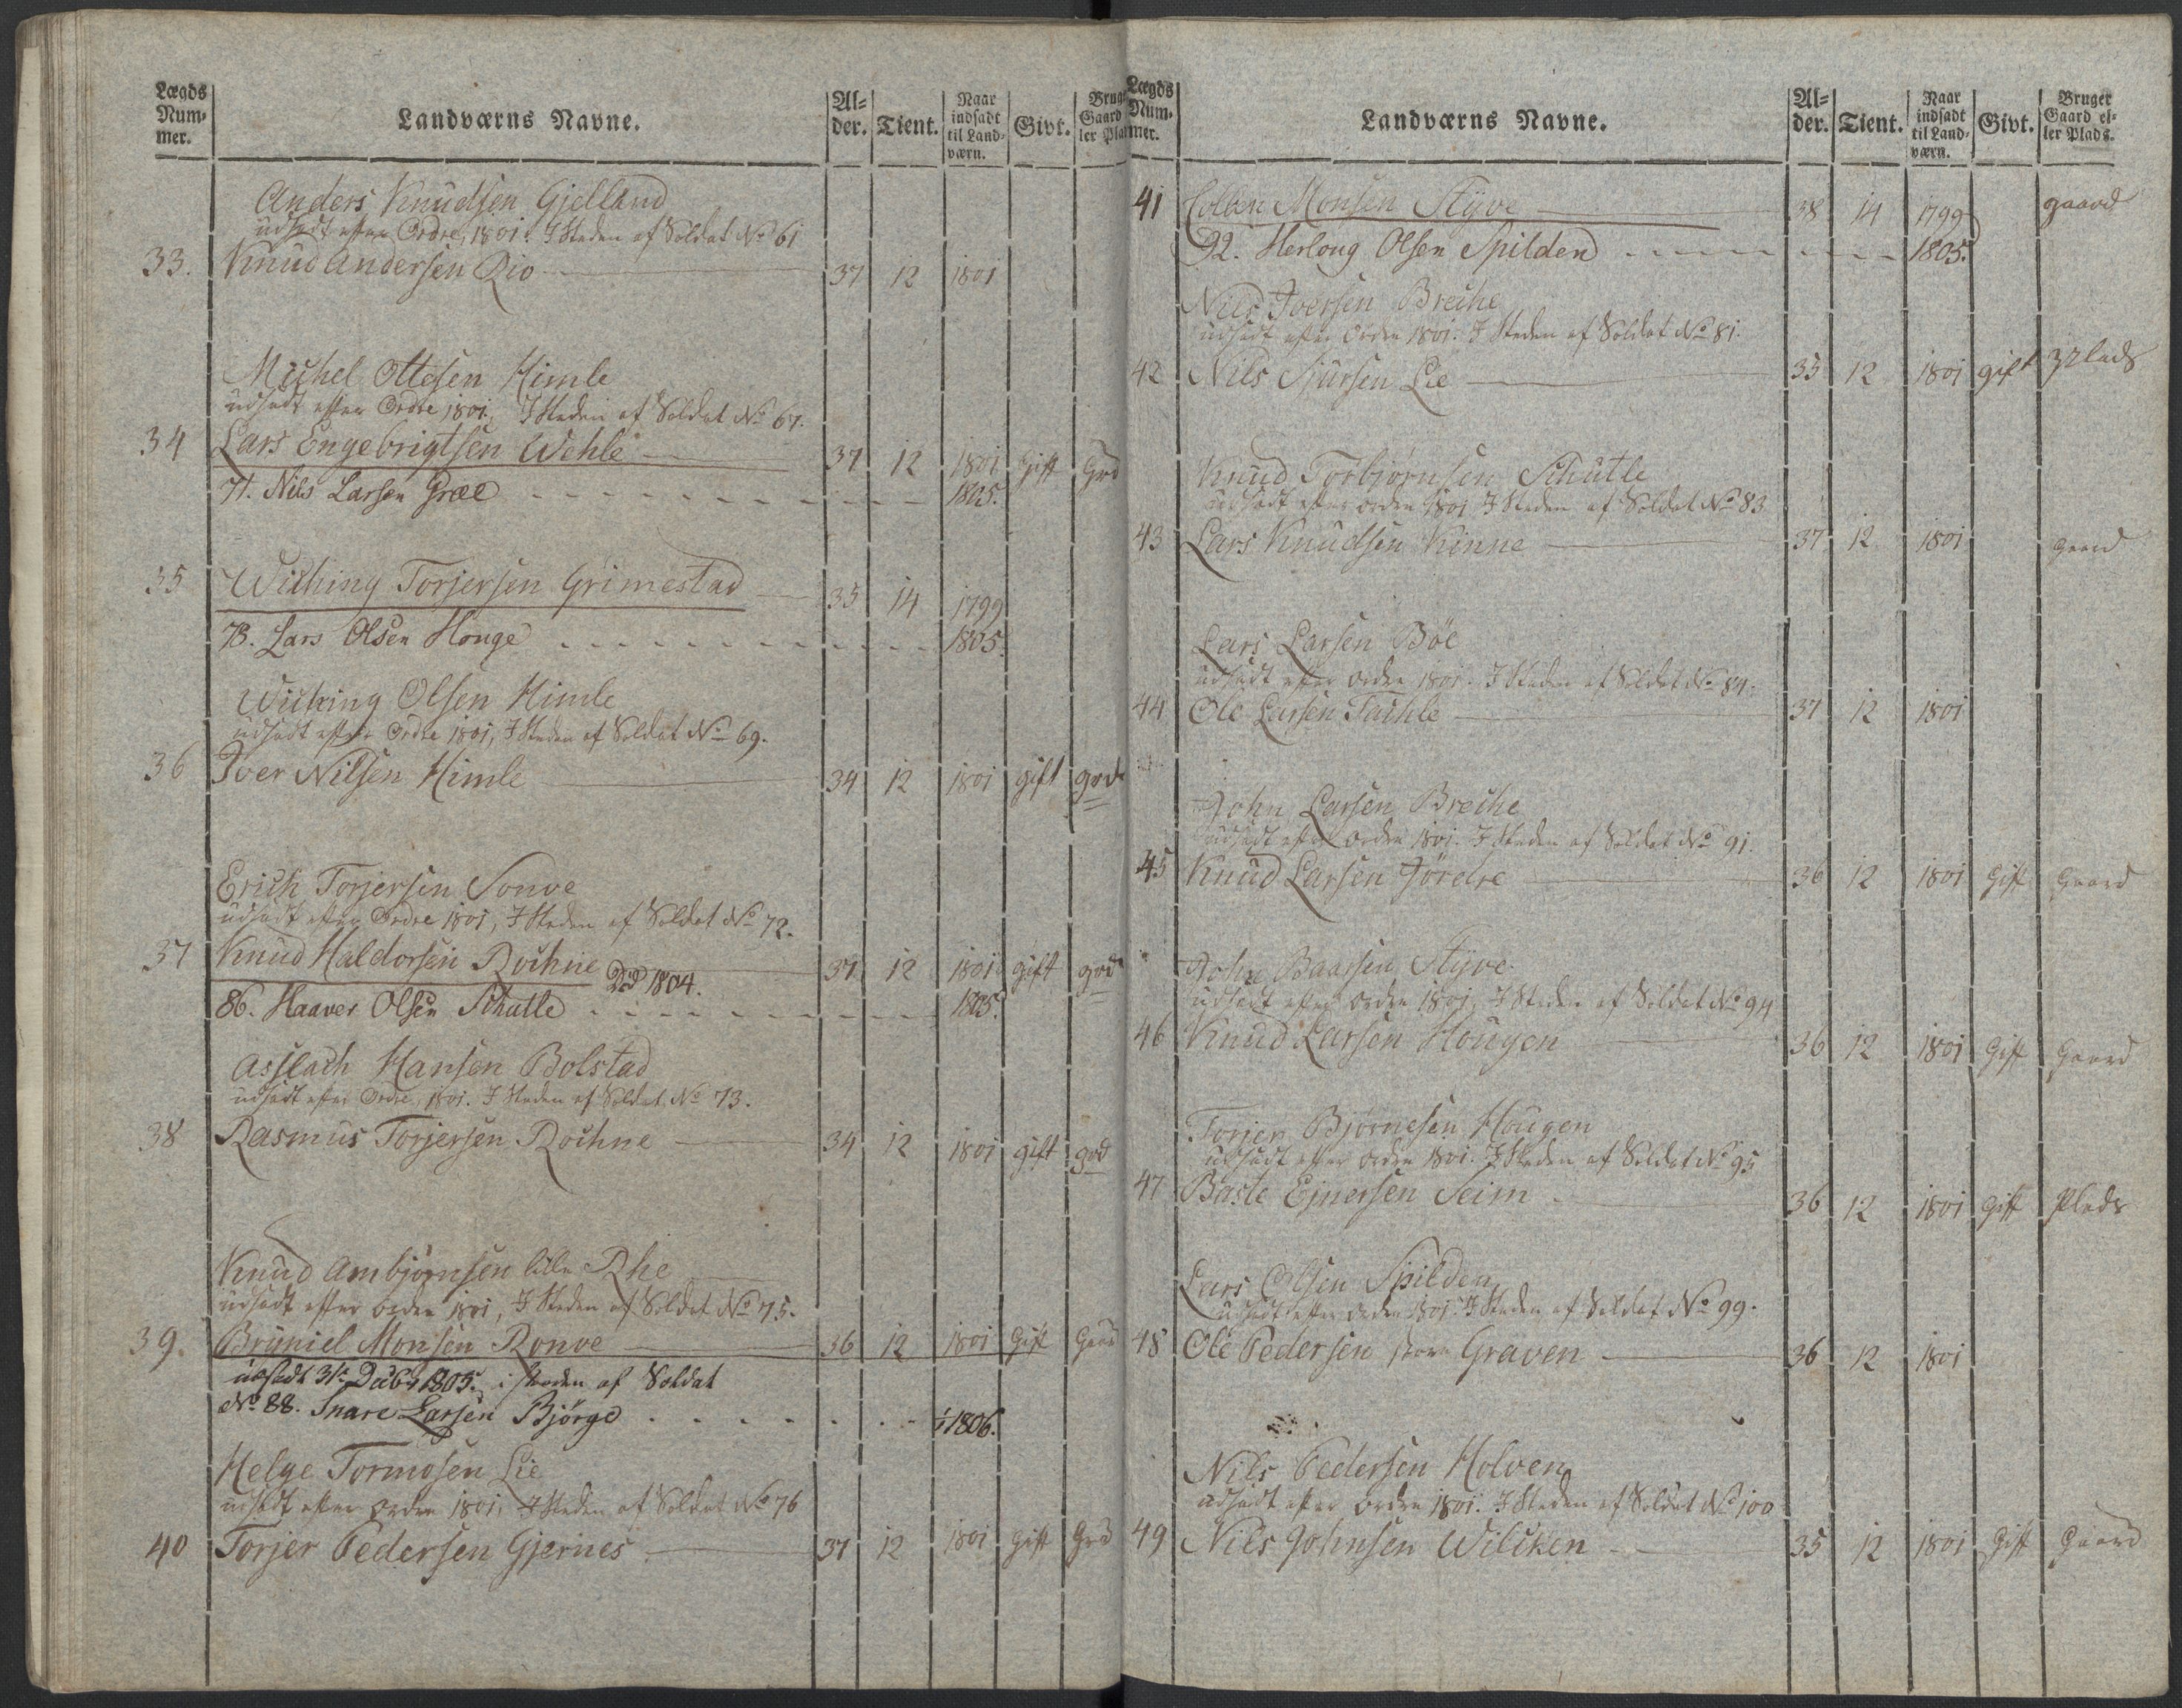 Lægds Num- mer.
Landværns Navne.
Al- der.
Tient.
Naar indsadt til Land- værn.
Givt.
Bruger Gaard el- ler Plads
Anders Knudsen Gjelland
udsadt efter Ordre, 1801. I Steden af Soldat No 61
33. Knud Andersen Qio 37 12 1801
Michel Ottesen Himle
udsadt efter Ordre 1801, I Steden af Soldat No 67.
34 Lars Engebrigtsen Wehle 37 12 1801 Gift Grd
71. Nils Larsen Græe 1805.
35 Wiching Torjersen Grimestad 35 14 1799
78. Lars Olsen Houge 1805.
Wichring Olsen Himle
udsadt efter Ordre 1801, I Steden af Soldat No 69.
36 Iver Nilsen Himle 34 12 1801 gift grd
Erich Torjersen Sonve
udsadt efter Ordre 1801, I Steden af Soldat No 72.
37 Knud Haldorsen Rochne Død 1804. 37 12 1801 gift grd
86. Haaver Olsen Schutle 1805.
Asslach Hansen Bolstad
udsadt efter Ordre, 1801. I Steden af Soldat No 73.
38 Rasmus Torjersen Rochne 34 12 1801 gift grd
Knud Ambjørnsen lille Rhe
udsadt efter ordre 1801, I Steden af Soldat No 75.
39. Bruniel Monsen Ronve 36 12 1801 Gift Gaard
udsadt 31te Decbr 1805. i steden af Soldat
No 88. Snare Larsen Bjørge 1/1 1806.
Helge Tormosen Lie
udsadt efter ordre 1801, I Steden af Soldat No 76
40 Torjer Pedersen Gjernes 37 12 1801 Gift Grd
Lægds Num- mer.
Landværns Navne.
Al- der.
Tient.
Naar indsadt til Land- værn.
Givt.
Bruger Gaard el- ler Plads.
41 Colben Monsen Styve 38 14 1799 gaard
92. Herloug Olsen Spilden 1805.
Nils Iversen Breche
udsadt efter Ordre 1801. I Steden af Soldat No 81.
42 Nils Sjursen Lie 35 12 1801 gift Plads
Knud Torbjørnsen Schutle
udsadt efter ordre 1801 I Steden af Soldat No 83
43 Lars Knudsen Kinne 37 12 1801 Gaard
Lars Larsen Bøe
udsadt efter ordre 1801. I Steden af Soldat No 84.
44 Ole Larsen Tachle 37 12 1801
John Larsen Breche
udsadt efter ordre 1801. I Steden af Soldat No 91.
45 Knud Larsen Jørdre 36 12 1801 Gift Gaard
John Baarsen Styve
udsadt efter ordre 1801, I Steden af Soldat No 94
46 Knud Larsen Hougen 36 12 1801 Gift Gaard
Torjer Bjørnesen Hougen
udsadt efter ordre 1801. I Steden af Soldat No 95
47 Baste Ejnersen Seim 36 12 1801 Gift Plads
Lars Olsen Spilden
udsadt efter ordre 1801. I Steden af Soldat No 99.
48 Ole Pedersen store Graven 36 12 1801
Nils Pedersen Holven
udsadt efter ordre 1801. I Steden af Soldat No 100
49 Nils Johnsen Wilchen 35 12 1801 Gift Gaard